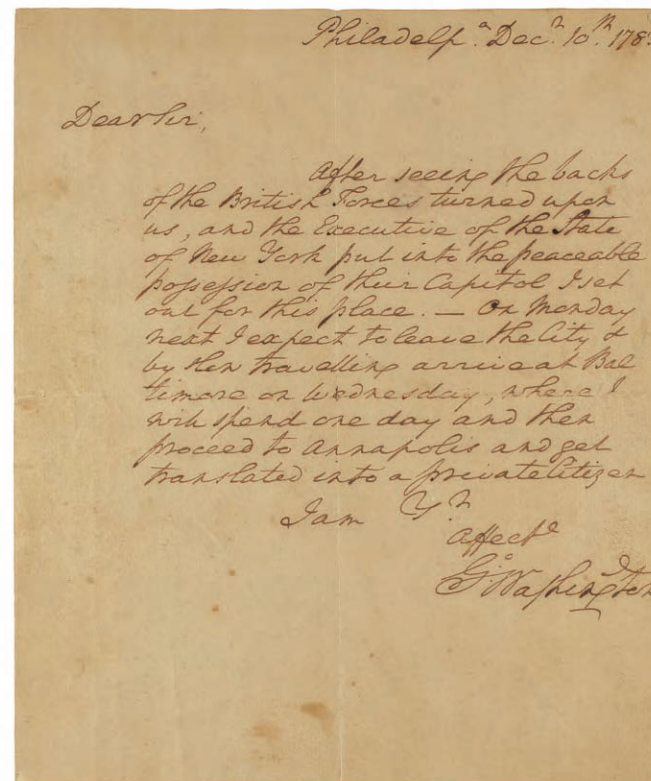 Philadelpᵃ Decʳ 10ᵗʰ 178
Dear Sir,
After seeing the backs
of the British Forces turned upon
us, and the Executive of the State
of New York put into the peaceable
possession of their Capitol I set
out for this place. — On Monday
next I expect to leave the City &
by slow travelling arrive at Bal
timore on Wednesday, where I
will spend one day and then
proceed to Annapolis and get
translated into a private Citizen
I am Yʳ
Affectᵉ
Gᵒ Washington